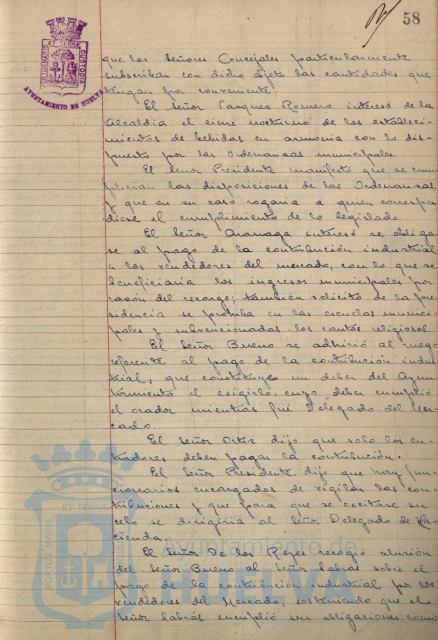 58
AYUNTAMIENTO DE HUELVA
que los Señores Concejales particularmente
subscriban con dicho objeto las cantidades que
tengan por conveniente.
El Señor Vazquez Romero interesó de la
Alcaldia el cierre nocturno de los estableci-
mientos de bebidas en armonia con lo dis-
puesto por las Ordenanzas municipales.
El Señor Presidente manifestó que se cum
plirian las disposiciones de las Ordenanzas,
y que en su caso rogaria a quien correspon
diese el cumplimiento de lo legislado.
El Señor interesó se obliga-
se al pago de la contribución industrial
a los vendedores del mercado, con lo que se
beneficiaria los ingresos municipales por
razón del recargo; también solicitó de la pre
sidencia se prohiba en las escuelas munici-
pales y subvencionadas los cantos religiosos.
El Señor Bueno se adhirió al ruego
referente al pago de la contribución indus
trial, que constituye un deber del Ayun-
tamiento el exigirlo, cuyo deber cumplió
el orador mientras fué Delegado del Mer-
cado.
El Señor Ortiz dijo que solo los en-
tradores deben pagar la contribución.
El Señor Presidente dijo que hay fun-
cionarios encargados de vigilar las con-
tribuciones y que para que se excitare su
celo se dirigiria al Señor Delegado de Ha-
cienda.
El Señor De los Reyes recogió alusión
del Señor Bueno al Señor Labrós sobre el
pago de la contribución industrial por los
vendedores del Mercado, sosteniendo que el
Señor Labrós cumplió sus obligaciones como
PORTUS MARIS ET TERRAE
Ayuntamiento de
HUELVA